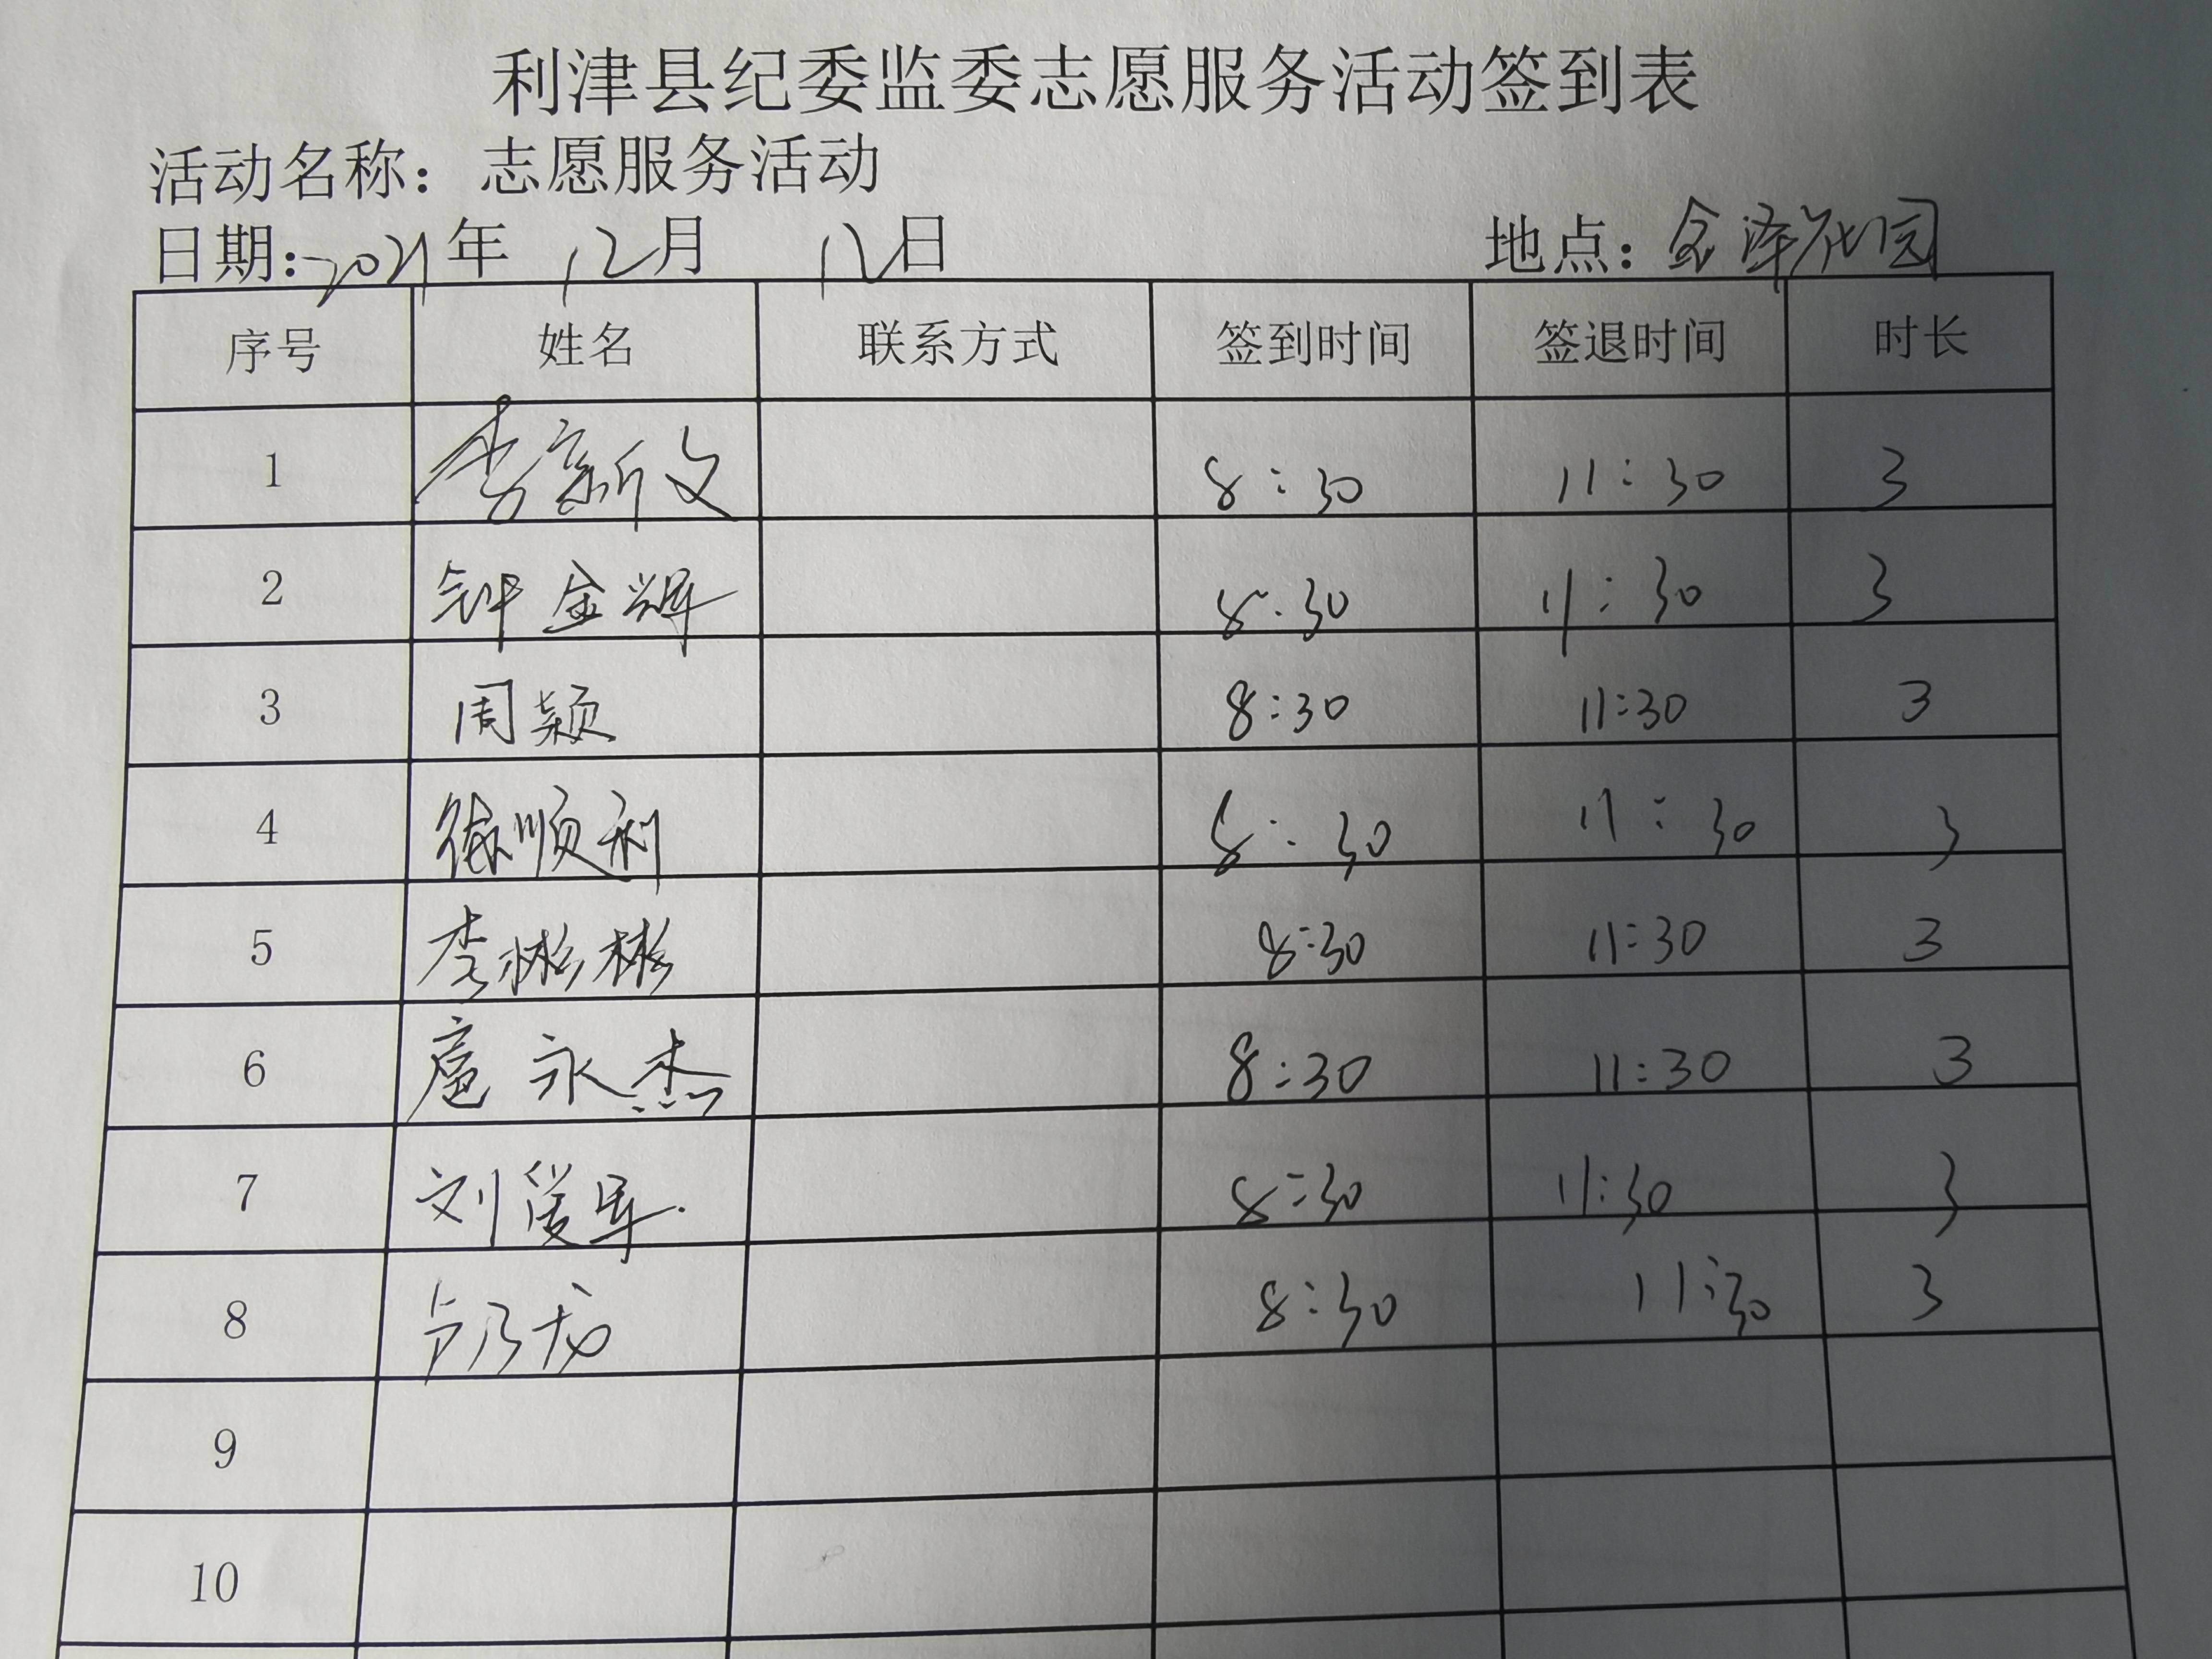 利津县纪委监委志愿服务活动签到表
活动名称：志愿服务活动
日期:2021年 12月 12日 地点：金泽花园
序号 姓名 联系方式 签到时间 签退时间 时长
1 李新文 8:30 11:30 3
2 钟金辉 8:30 11:30 3
3 周颖 8:30 11:30 3
4 徐顺利 8:30 11:30 3
5 李彬彬 8:30 11:30 3
6 扈永杰 8:30 11:30 3
7 刘爱军 8:30 11:30 3
8 8:30 11:30 3
9
10